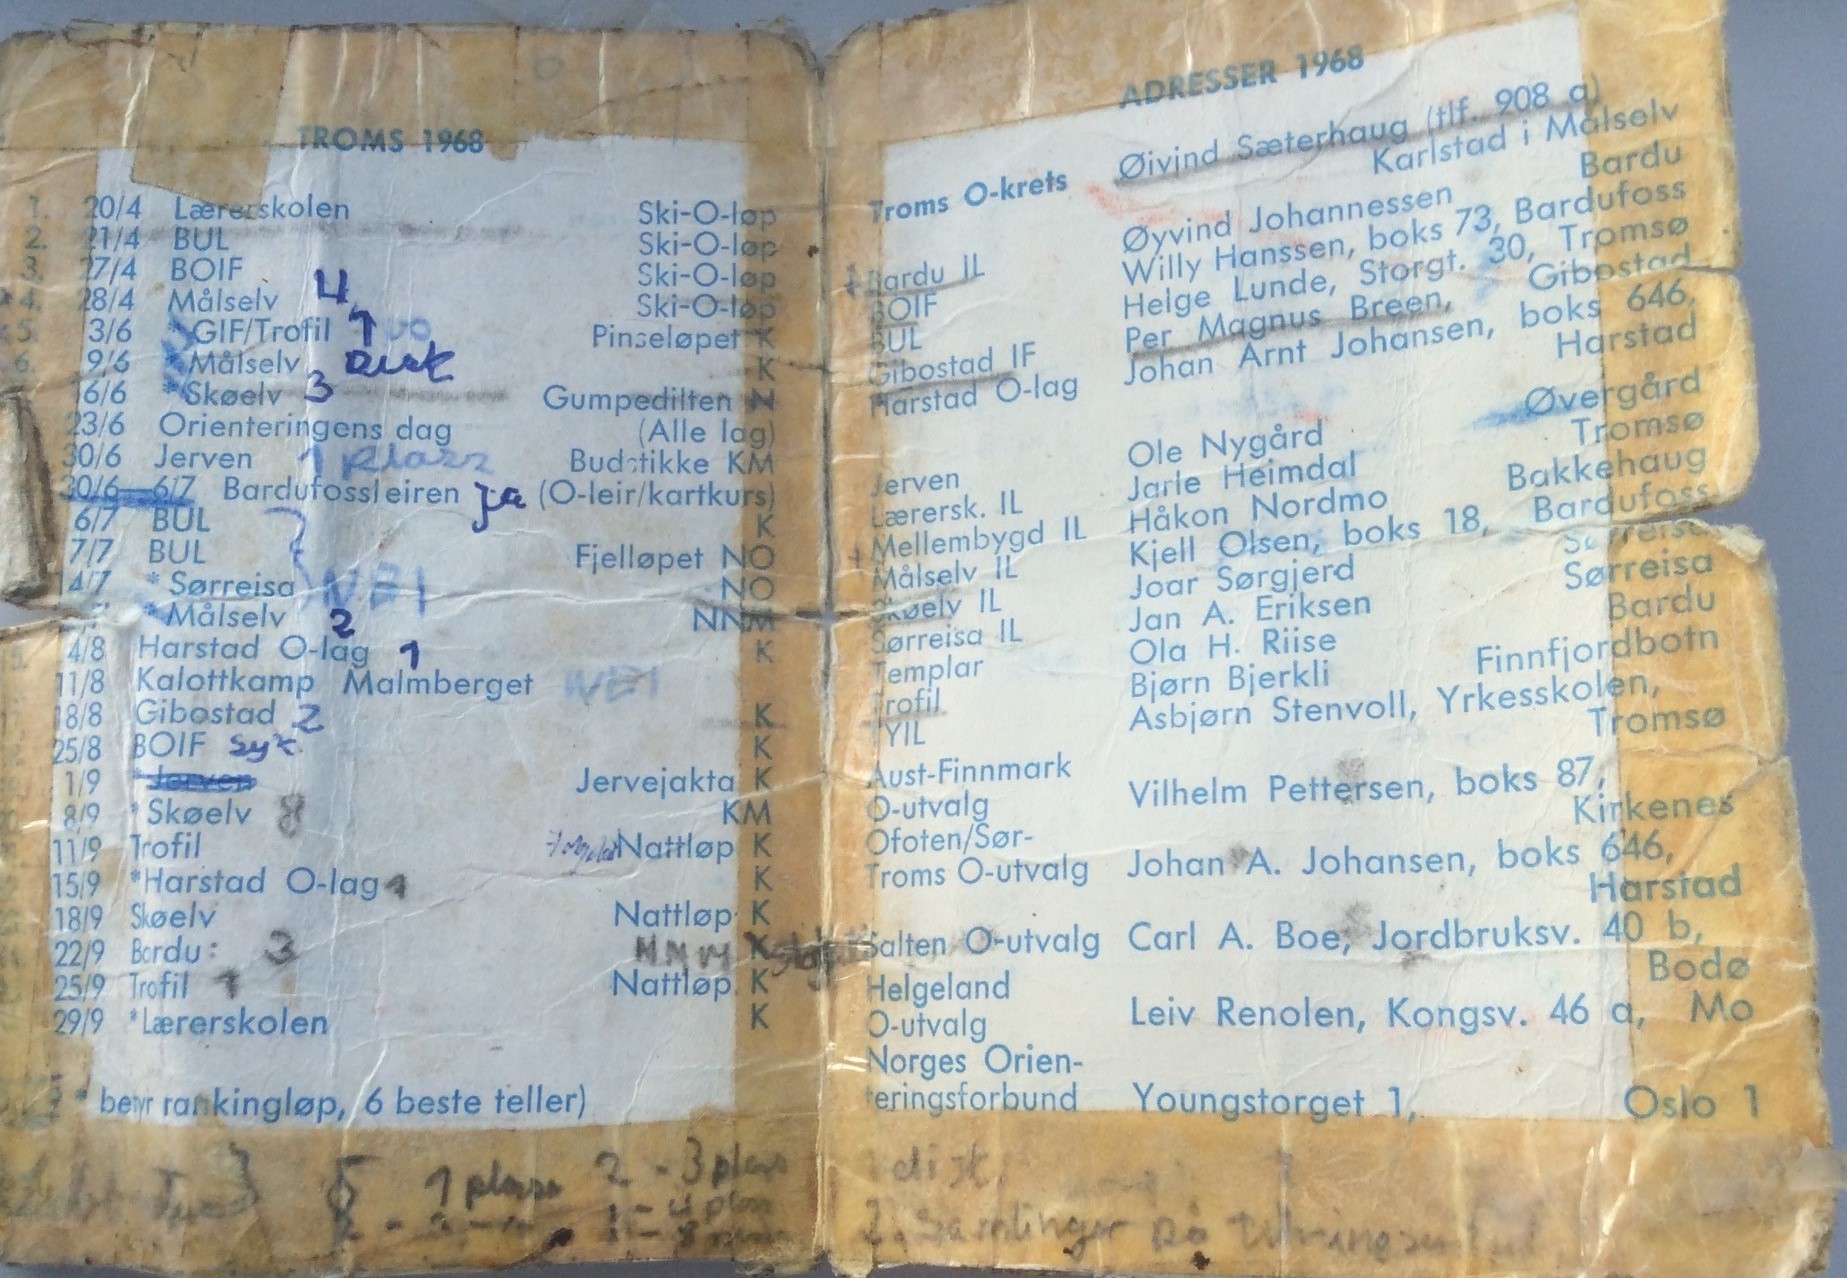 TROMS 1968
1. 20/4 Lærerskolen Ski-O-løp
2. 21/4 BUL Ski-O-løp
3. 27/4 BOIF Ski-O-løp
4. 28/4 Målselv 4 Ski-O-løp
5. 3/6 * GIF/Trofil 1 Pinseløpet K
6. 9/6 * Målselv Disk K
16/6 * Skøelv 3 Gumpedilten N
23/6 Orienteringens dag (Alle lag)
30/6 Jerven 1 plass Budstikke KM
30/6—6/7 Bardufossleiren ja (O-leir/kartkurs)
6/7 BUL K
7/7 BUL Fjelløpet NO
4/7 * Sørreisa NEI NO
* Målselv 2 NNM
4/8 Harstad O-lag 1 K
11/8 Kalottkamp Malmberget NEI
18/8 Gibostad 2 K
25/8 BOIF Syk. K
1/9 * Jerven Jervejakta K
8/9 * Skøelv 8 KM
11/9 Trofil Nattløp K
15/9 *Harstad O-lag 1 K
18/9 Skøelv Nattløp K
22/9 Bardu: 3 NMM K
25/9 Trofil 1 Nattløp K
29/9 *Lærerskolen K
* betyr rankingløp, 6 beste teller)
5 - 1 plass 2 - 3 plass
2 - 2 1 - 4 plass
ADRESSER 1968
Troms O-krets Øivind Sæterhaug (tlf. 908 a)
Karlstad i Målselv
Bardu IL Øyvind Johannessen Bardu
BOIF Willy Hanssen, boks 73, Bardufoss
BUL Helge Lunde, Storgt. 30, Tromsø
Gibostad IF Per Magnus Breen, Gibostad
Harstad O-lag Johan Arnt Johansen, boks 646,
Harstad
Jerven Ole Nygård Øvergård
Lærersk. IL Jarle Heimdal Tromsø
Mellembygd IL Håkon Nordmo Bakkehaug
Målselv IL Kjell Olsen, boks 18, Bardufoss
Skøelv IL Joar Sørgjerd Sørreisa
Sørreisa IL Jan A. Eriksen Sørreisa
Templar Ola H. Riise Bardu
Trofil Bjørn Bjerkli Finnfjordbotn
TYIL Asbjørn Stenvoll, Yrkesskolen,
Tromsø
Aust-Finnmark
O-utvalg Vilhelm Pettersen, boks 87,
Kirkenes
Ofoten/Sør-
Troms O-utvalg Johan A. Johansen, boks 646,
Harstad
Salten O-utvalg Carl A. Boe, Jordbruksv. 40 b,
Bodø
Helgeland
O-utvalg Leiv Renolen, Kongsv. 46 a, Mo
Norges Orien-
teringsforbund Youngstorget 1, Oslo 1
1 disk.
2. Samlinger på